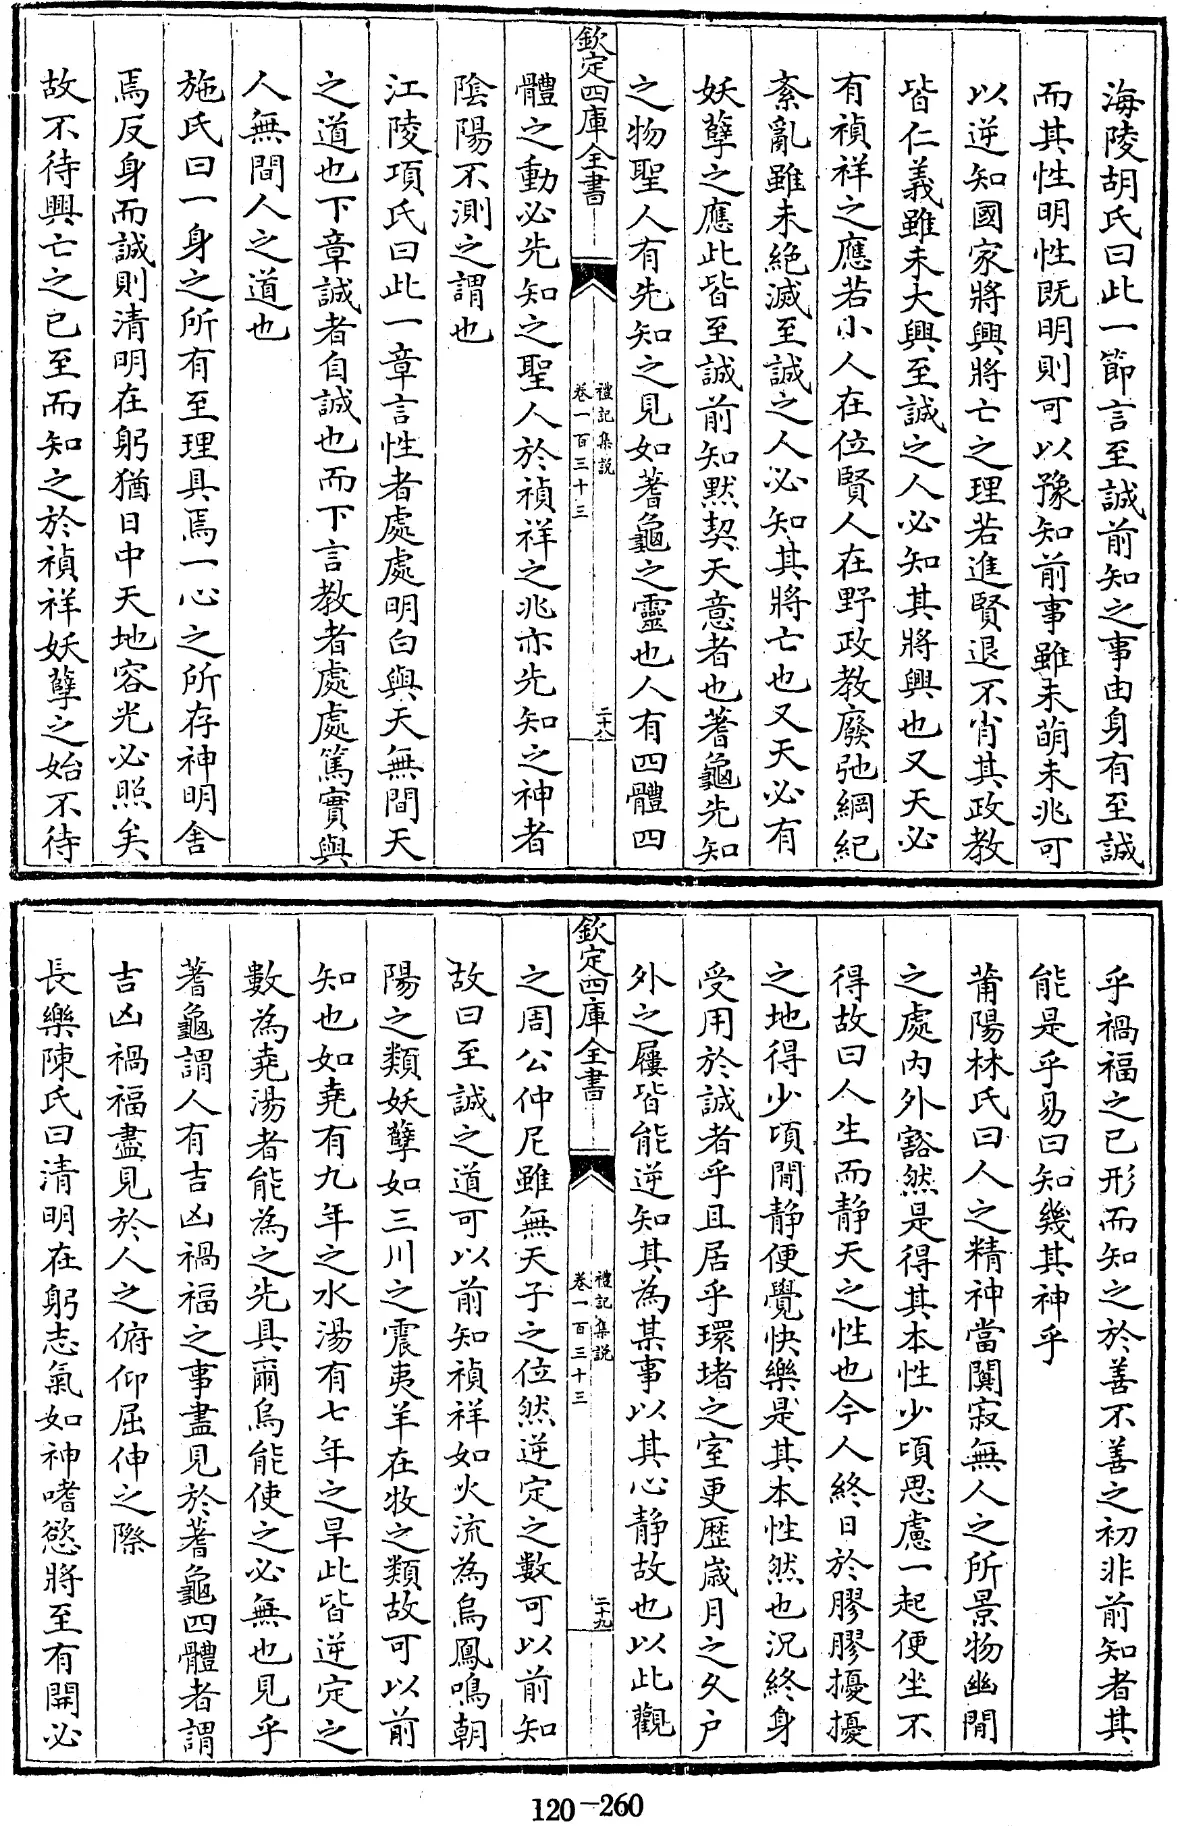 海陵胡氏曰此一節言至誠前知之事由身有至誠
而其性明性既明則可以豫知前事雖未萌未兆可
以逆知國家將興將亡之理若進賢退不肖其政教
皆仁義雖未大興至誠之人必知其將興也又天必
有禎祥之應若小人在位賢人在野政教廢弛綱紀
紊亂雖未絶滅至誠之人必知其將亡也又天必有
妖孽之應此皆至誠前知黙契天意者也蓍龜先知
之物聖人有先知之見如蓍龜之靈也人有四體四
欽定四庫全書
禮記集説
卷一百三十三
二十八
體之動必先知之聖人於禎祥之兆亦先知之神者
陰陽不測之謂也
江陵項氏曰此一章言性者處處明白與天無間天
之道也下章誠者自誠也而下言教者處處篤實與
人無間人之道也
施氏曰一身之所有至理具焉一心之所存神明舍
焉反身而誠則清明在躬猶日中天地容光必照矣
故不待興亡之已至而知之於禎祥妖孽之始不待
乎禍福之已形而知之於善不善之初非前知者其
能是乎易曰知幾其神乎
莆陽林氏曰人之精神當闃寂無人之所景物幽閒
之處内外豁然是得其本性少頃思慮一起便坐不
得故曰人生而静天之性也今人終日於膠膠擾擾
之地得少項閒静便覺快樂是其本性然也況終身
受用於誠者乎且居乎環堵之室更歴嵗月之久户
外之屨皆能逆知其為某事以其心静故也以此觀
欽定四庫全書
禮記集説
卷一百三十三
二十九
之周公仲尼雖無天子之位然逆定之數可以前知
故曰至誠之道可以前知禎祥如火流為烏鳳鳴朝
陽之類妖孽如三川之震夷羊在牧之類故可以前
知也如堯有九年之水湯有七年之旱此皆逆定之
數為堯湯者能為之先具爾烏能使之必無也見乎
蓍龜謂人有吉凶禍福之事盡見於蓍龜四體者謂
吉凶禍福盡見於人之俯仰屈伸之際
長樂陳氏曰清明在躬志氣如神嗜慾將至有開必
120-260